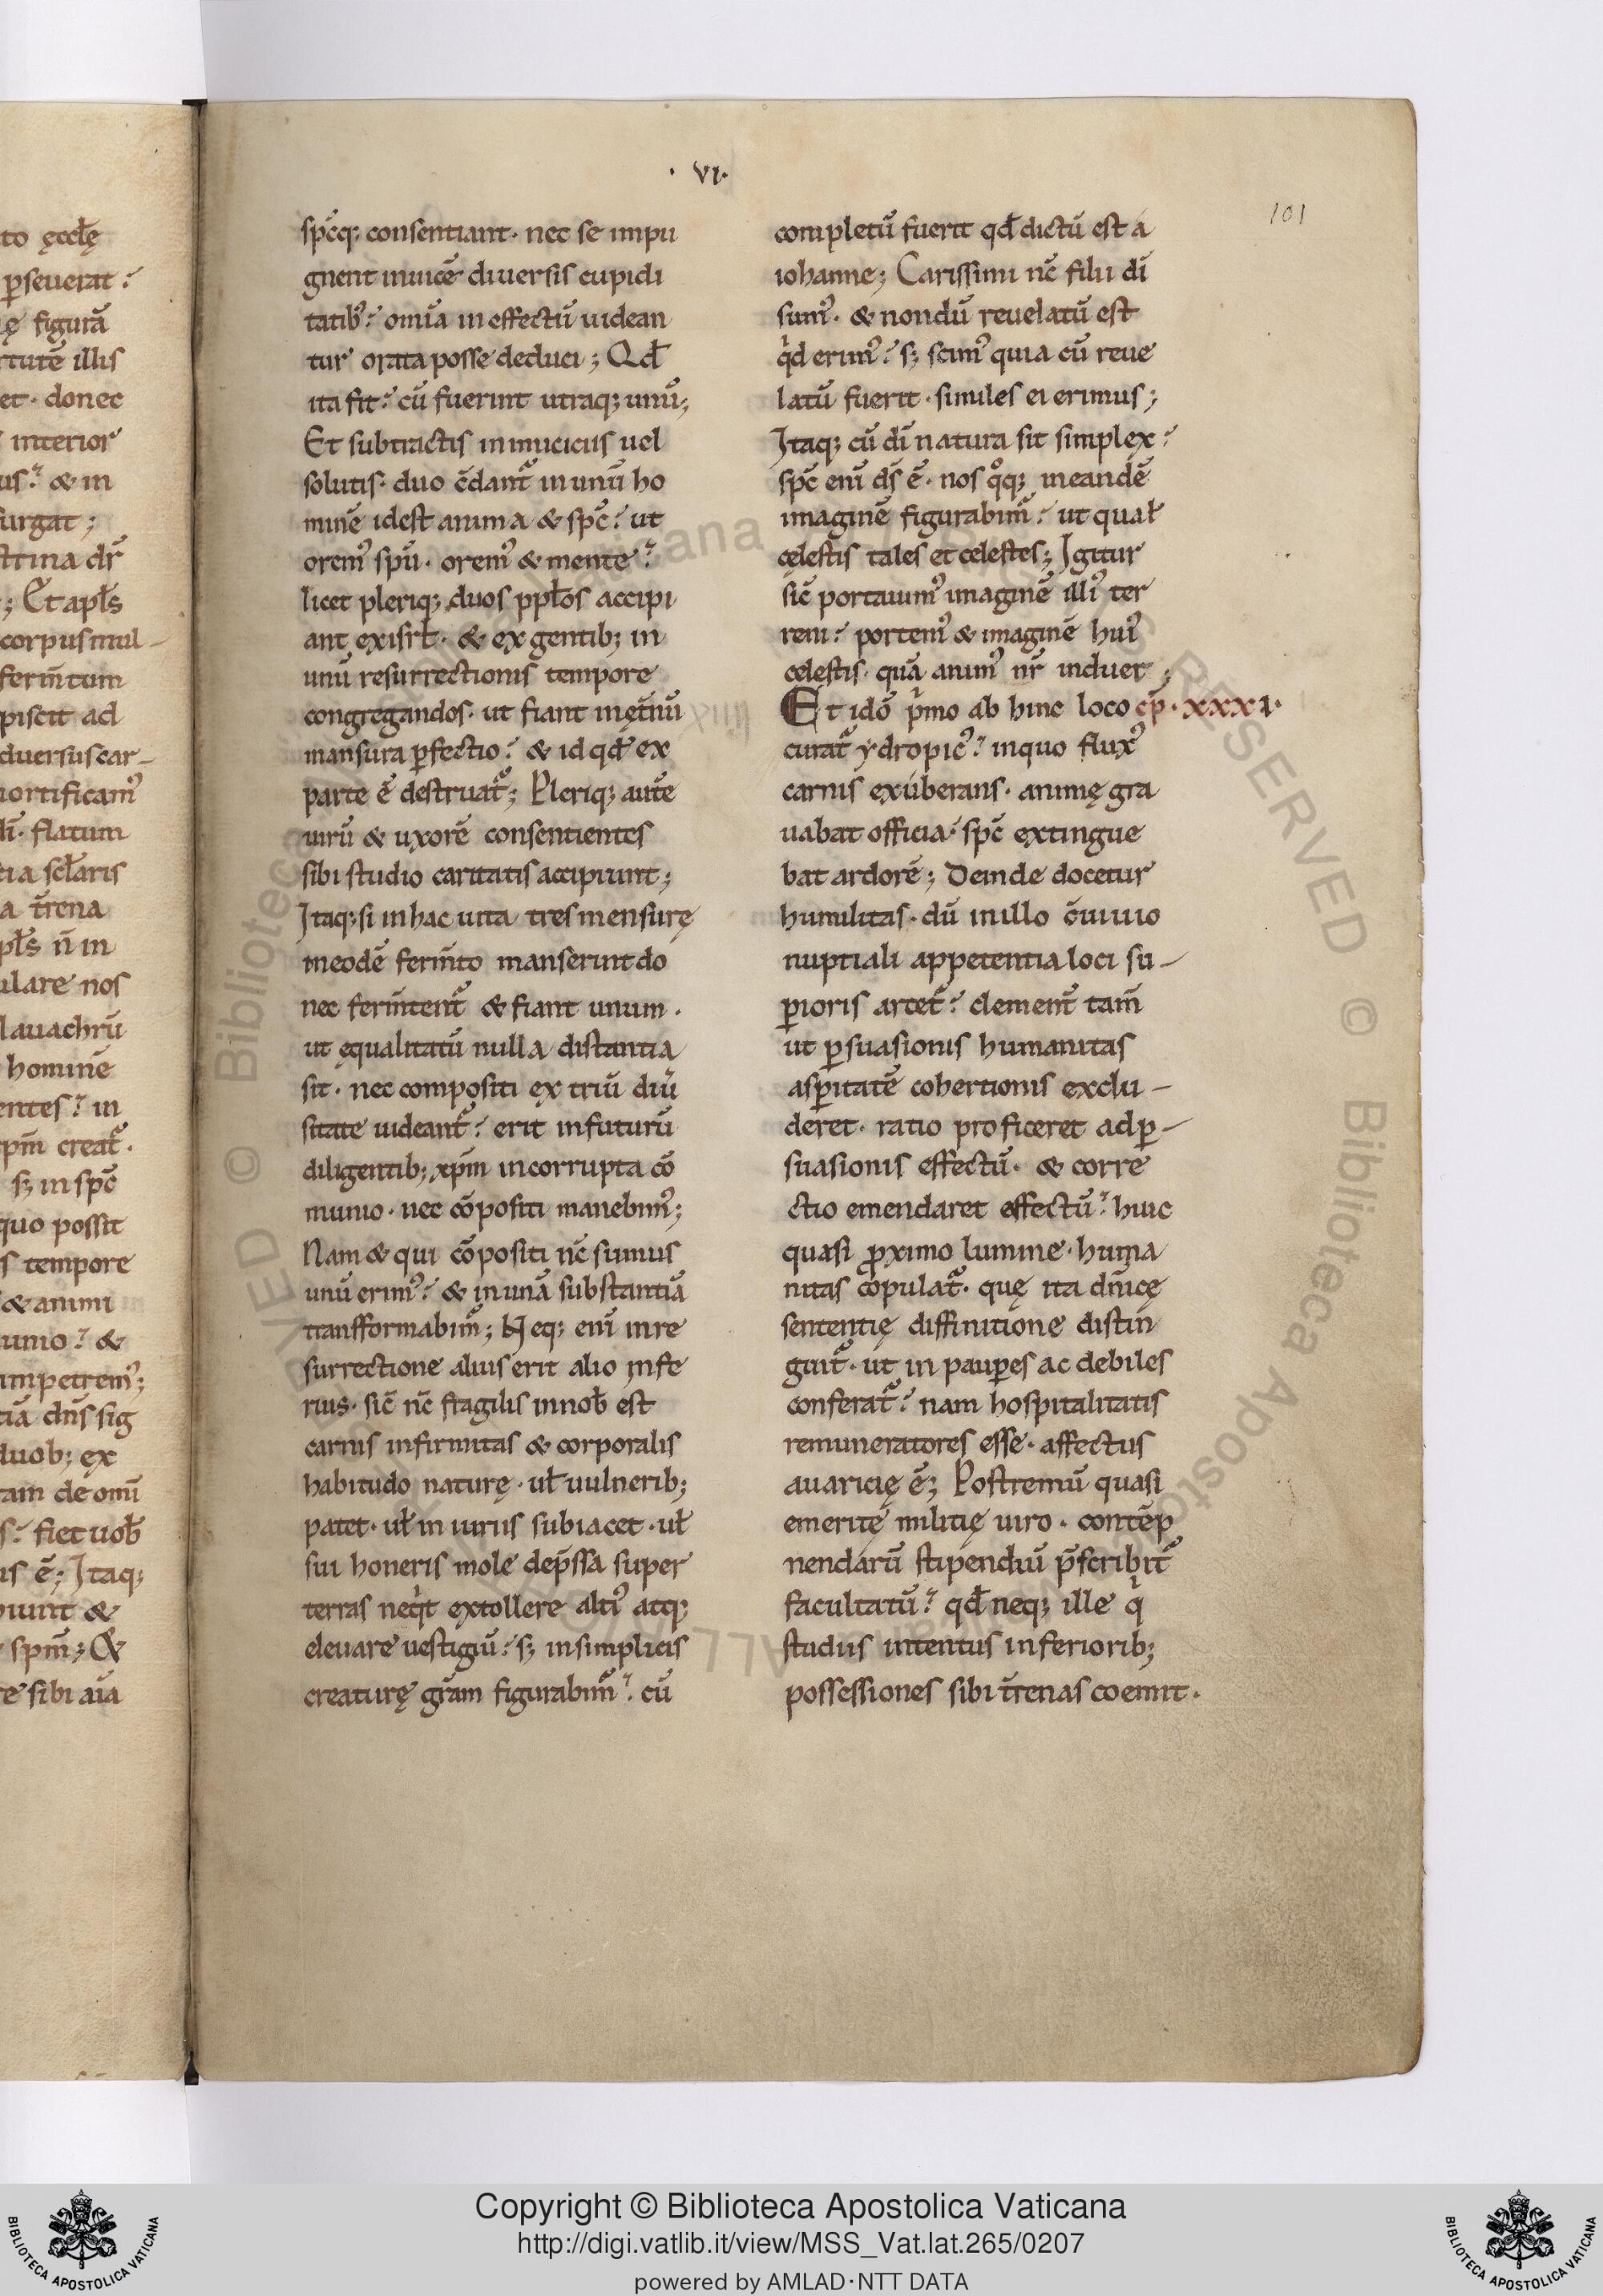 · VI·
101
sp̄cq; consentiant· nec se impu
gnent inuicē diuersis cupidi
tatib⁹? om̄ia in effectū uidean
tur orata posse deduci; Qd̄
ita fit? cū fuerint utraq; unū;
Et subtractis inimiciciis uel
solutis· duo c̄dant᷑ in unū ho
minē idest anima & sp̄c? ut
orem⁹ sp̄u· orem⁹ & mente?
licet pleriq; duos pp̄los accipi
ant exisrł· & ex gentib; in
unū resurrectionis tempore
congregandos· ut fiant męt̄nū
mansura ꝑfectio? & id qd̄ ex
parte ē destruat᷑; Pleriq; autē
uirū & uxorē consentientes
sibi studio caritatis accipiunt;
Itaq; si in hac uita tres mensurę
in eodē ferm̄to manserint do
nec ferm̄tent᷑ & fiant unum·
ut ęqualitatū nulla distantia
sit· nec compositi ex triū diu̕
sitate uideant᷑? erit in futurū
diligentib; xp̄m incorrupta cō
munio· nec cōpositi manebim⁹;
Nam & qui cōpositi nc̄ sumus
unū erim⁹? & in unā substantiā
transformabim᷑; Neq; enī in re
surrectione aliuis erit alio infe
rius· sic̄ nc̄ fragilis innob̄ est
carnis infirmitas & corporalis
habitudo naturę· uł uulnerib;
patet· uł in iuriis subiacet· uł
sui honeris mole dep̄ssa super
terras neqͥt extollere alti⁹ atq;
eleuare uestigiū? s; in simplicis
creaturę gr̄am figurabim᷑? cū
completū fuerit qd̄ dictū est a
iohanne; Carissimi nc̄ filii dī
sum⁹· & nondū reuelatū est
qͥd erim⁹? s; scim⁹ quia cū reue
latū fuerit· similes ei erimus;
Itaq; cū dī natura sit simplex?
sp̄c enī ds̄ ē· nos qͦq; in eandē
imaginē figurabim᷑? ut quał
cęlestis tales et celestes; Igitur
sic̄ portauim⁹ imaginē illi⁹ ter
reni? portem⁹ & imaginē hui⁹
celestis· quā anim⁹ nr̄ induer;
Et idō pͥmo ab hinc loco cp̄· xxxı·
curat᷑ ydropic⁹? in quo flux⁹
carnis exúberans· animę gra
uabat officia? sp̄c extingue
bat ardorē; Deinde docetur
humilitas· dū in illo c̄uiuio
nuptiali appetentia loci su-
ꝑioris arcet᷑? clement᷑ tam̄
ut ꝑsuasionis humanitas
asꝑitatē cohertionis exclu-
deret· ratio proficeret ad ꝑ-
suasionis effectū· & corre
ctio emendaret effectū? huic
quasi ꝓximo lumine· huma
nitas copulat᷑· quę ita dn̄icę
sententię diffinitione distin
guit᷑· ut in pauꝑes ac debiles
conferat᷑? nam hospitalitatis
remuneratores esse· affectus
auaricię ē; Postremū quasi
emeritę militię uiro· contēp
nendarū stipendiū p̄scribit᷑
facultatū? qd̄ neq; ille qͥ
studiis intentus inferiorib;
possessiones sibi tr̄enas coemit·
Copyright © Biblioteca Apostolica Vaticana
http://digi.vatlib.it/view/MSS_Vat.lat.265/0207
powered by AMLAD·NTT DATA